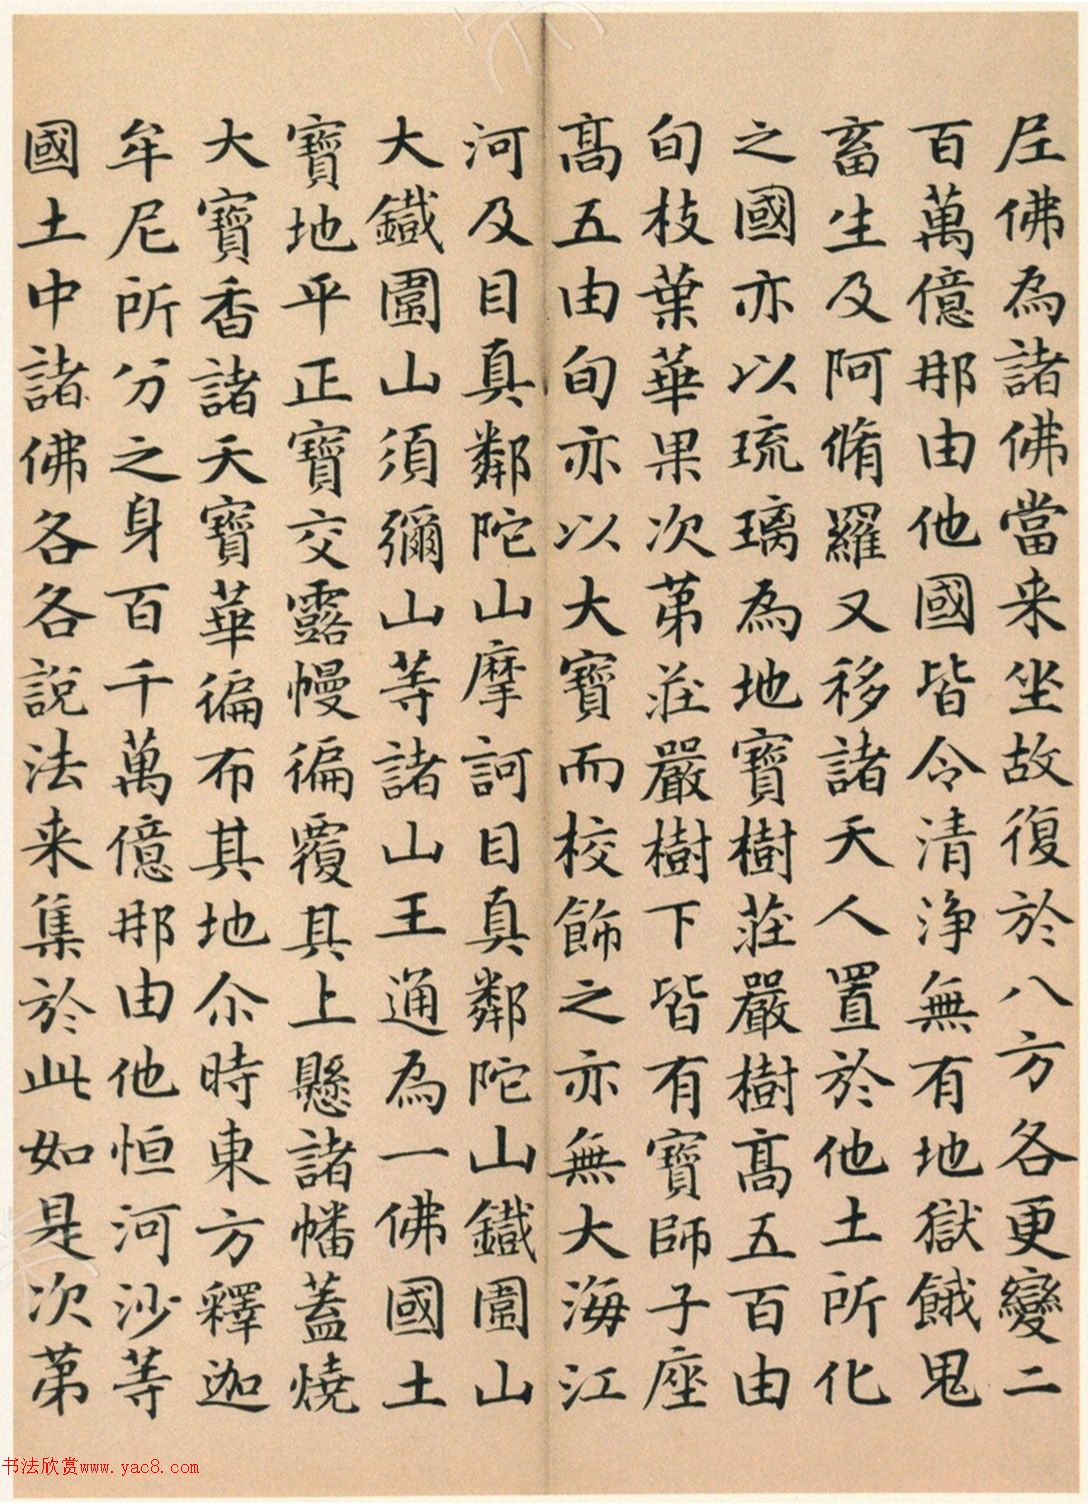 尼佛為諸佛當来坐故復於八方各更變二
百萬億那由他國皆令清淨無有地獄餓鬼
畜生及阿脩羅又移諸天人置於他土所化
之國亦以琉璃為地寶樹莊嚴樹高五百由
旬枝葉華果次苐莊嚴樹下皆有寶師子座
高五由旬亦以大寶而校飾之亦無大海江
河及目真鄰陀山摩訶目真鄰陀山鐵圍山
大鐵圍山須彌山等諸山王通為一佛國土
寶地平正寶交露幔徧覆其上懸諸幡蓋燒
大寶香諸天寶華徧布其地尒時東方釋迦
牟尼所分之身百千萬億那由他恒河沙等
國土中諸佛各各說法来集於此如是次苐
书法欣赏www.yac8.com